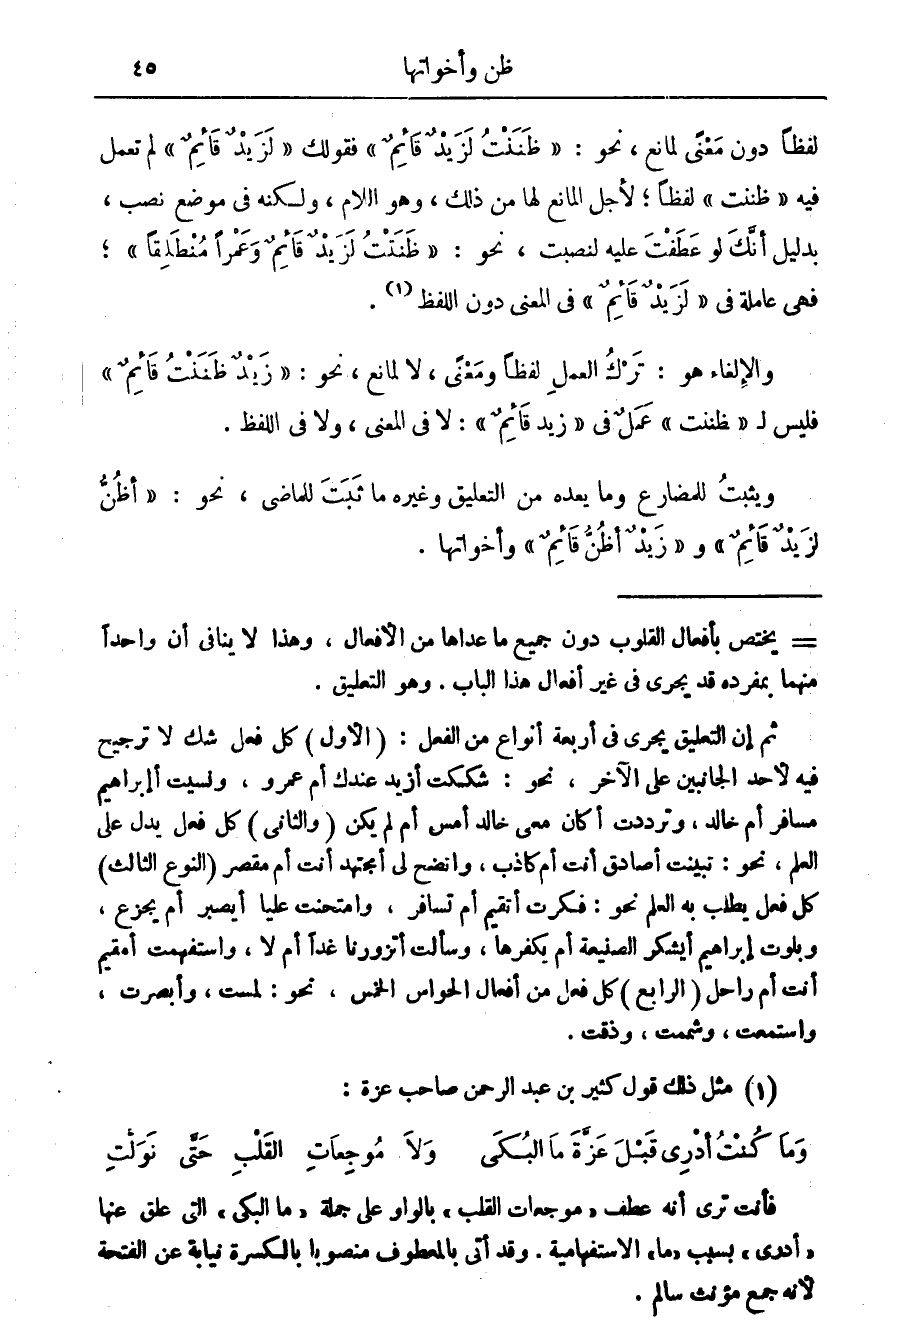 ظن وأخواتها ٤٥
لفظاً دون مَعْنًى لمانع ، نحو : « ظَنَنْتُ لَزَيْدٌ قَائِمٌ » فقولك « لَزَيْدٌ قَائِمٌ » لم تعمل
فيه « ظننت » لفظاً ؛ لأجل المانع لها من ذلك ، وهو اللام ، ولكنه فى موضع نصب ،
بدليل أنَّكَ لو عَطَفْتَ عليه لنصبت ، نحو : « ظَنَنْتُ لَزَيْدٌ قَائِمٌ وَعَمْراً مُنْطَلِقاً » ؛
فهى عاملة فى « لَزَيْدٌ قَائِمٌ » فى المعنى دون اللفظ (١) .
والإلغاء هو : تَرْكُ العملِ لفظاً ومَعْنًى ، لا لمانع ، نحو : « زَيْدٌ ظَنَنْتُ قَائِمٌ »
فليس لـ « ظننت » عَمَلٌ فى « زيد قَائِمٌ » : لا فى المعنى ، ولا فى اللفظ .
ويثبتُ للمضارع وما بعده من التعليق وغيره ما ثَبَتَ للماضى ، نحو : « أظُنُّ
لَزَيْدٌ قَائِمٌ » و « زَيْدٌ أظُنُّ قَائِمٌ » وأخواتها .
= يختص بأفعال القلوب دون جميع ما عداها من الأفعال ، وهذا لا ينافى أن واحداً
منهما بمفرده قد يجرى فى غير أفعال هذا الباب . وهو التعليق .
ثم إن التعليق يجرى فى أربعة أنواع من الفعل : ( الأول ) كل فعل شك لا ترجيح
فيه لأحد الجانبين على الآخر ، نحو : شككت أزيد عندك أم عمرو ، ونسيت أإبراهيم
مسافر أم خالد ، وترددت أكان معى خالد أمس أم لم يكن ( والثانى ) كل فعل يدل على
العلم ، نحو : تبينت أصادق أنت أم كاذب ، واتضح لى أمجتهد أنت أم مقصر ( النوع الثالث )
كل فعل يطلب به العلم نحو : فكرت أتقيم أم تسافر ، وامتحنت عليا أيصبر أم يجزع ،
وبلوت إبراهيم أيشكر الصنيعة أم يكفرها ، وسألت أتزورنا غداً أم لا ، واستفهمت أمقيم
أنت أم راحل ( الرابع ) كل فعل من أفعال الحواس الخمس ، نحو : لمست ، وأبصرت ،
واستمعت ، وشممت ، وذقت .
(١) مثل ذلك قول كثير بن عبد الرحمن صاحب عزة :
وَمَا كُنْتُ أدْرِى قَبْلَ عَزَّةَ مَا البُكَى وَلاَ مُوجِعَاتِ القَلْبِ حَتَّى تَوَلَّتِ
فأنت ترى أنه عطف « موجعات القلب » بالواو على جملة « ما البكى » التى علق عنها
« أدرى » بسبب « ما » الاستفهامية . وقد أتى بالمعطوف منصوبا بالكسرة نيابة عن الفتحة
لأنه جمع مؤنث سالم .